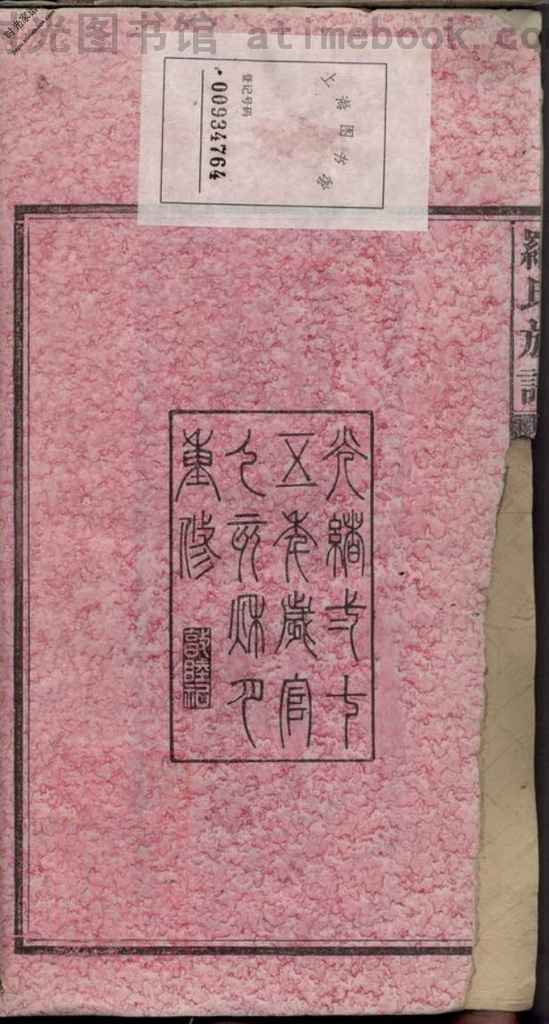 时光图书馆 atimebook.co
时光家谱
上海图书馆
登记号码
00934764
羅氏族譜
光緒弍十
五年歲官
己亥秋月
重修
敦睦